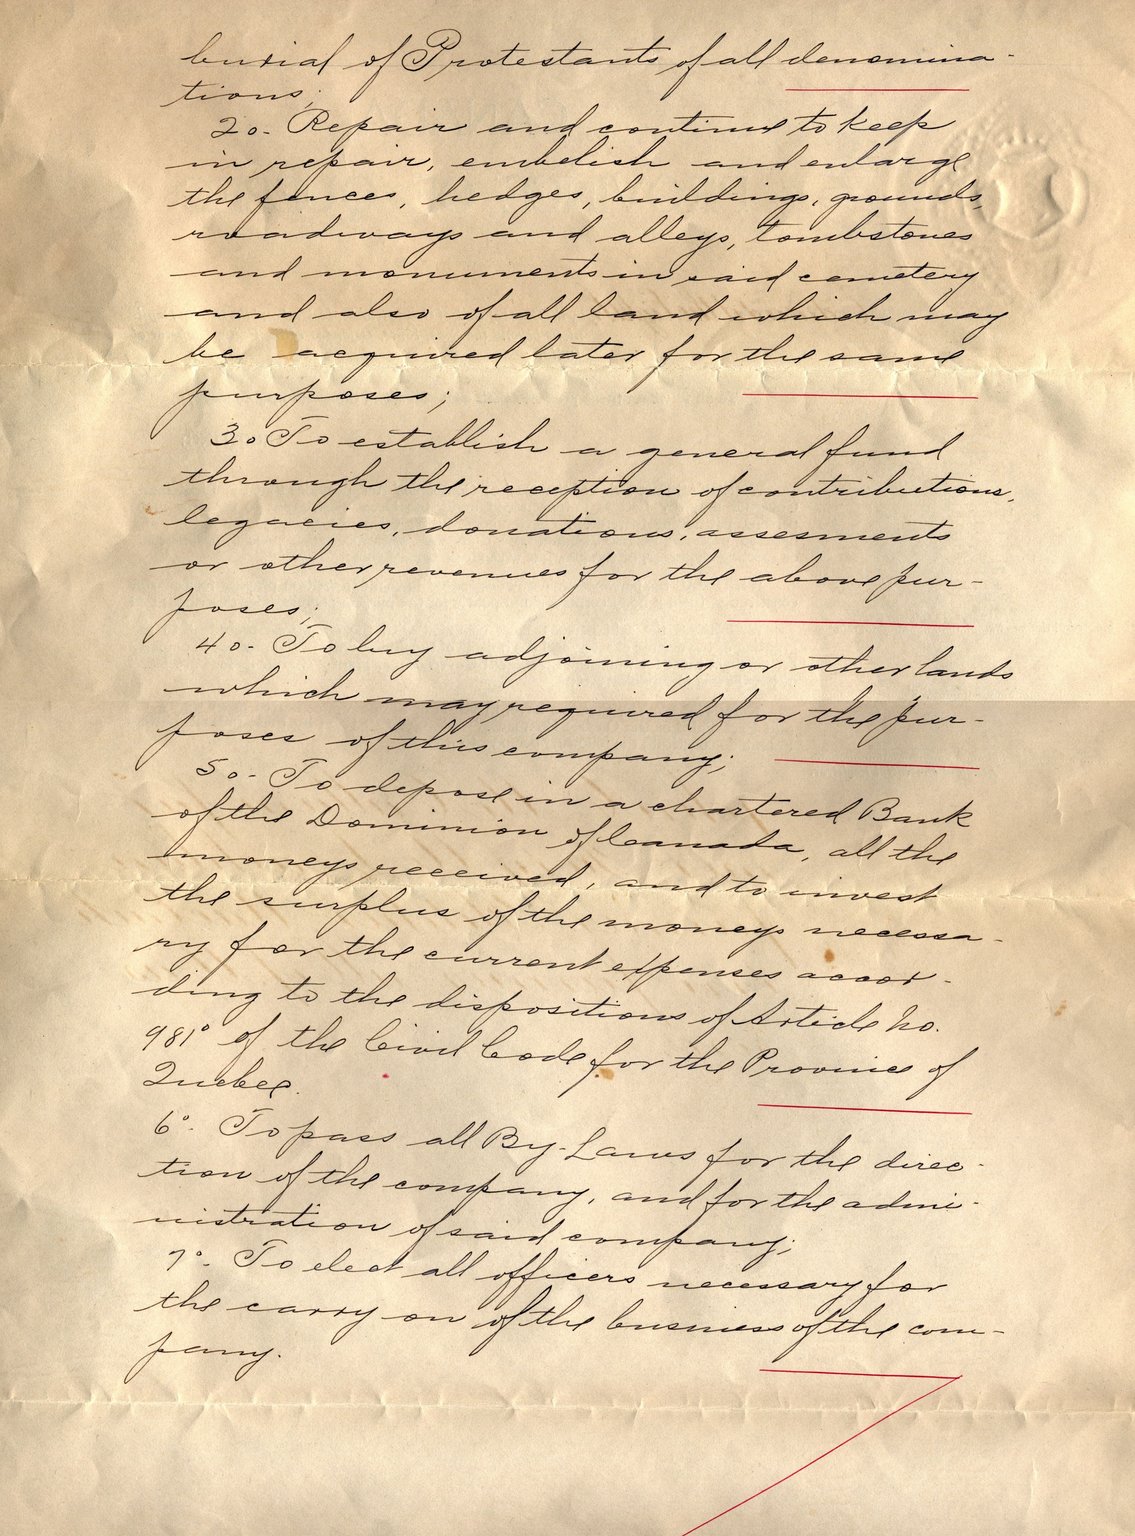 burial of Protestants of all denomina-
tions;
2o. Repair and continue to keep
in repair, embelish and enlarge
the fences, hedges, buildings, grounds,
roadways and alleys, tombstones
and monuments in said cemetery
and also of all land which may
be acquired later for the same
purposes;
3o To establish a general fund
through the reception of contributions,
legacies, donations, assesments
or other revenues for the above pur-
poses;
4o. To buy adjoining or other lands
which may required for the pur-
poses of this company;
5o. To depose in a chartered Bank
of the Dominion of Canada, all the
moneys received, and to invest
the surplus of the moneys necessa-
ry for the current expenses accor-
ding to the dispositions of Article No.
981° of the Civil Code for the Province of
Quebec.
6°. To pass all By-Laws for the direc-
tion of the company, and for the admi-
nistration of said company;
7°. To elect all officers necessary for
the carry on of the business of the com-
pany.